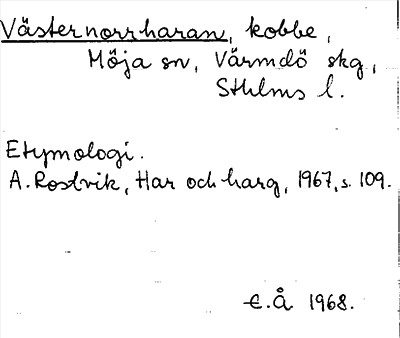 Västernorrharan, kobbe,
Möja sn, Värmdö skg,
Sthlms l.
Etymologi.
A. Rostvik, Har och harg, 1967, s. 109.
E.Å 1968.